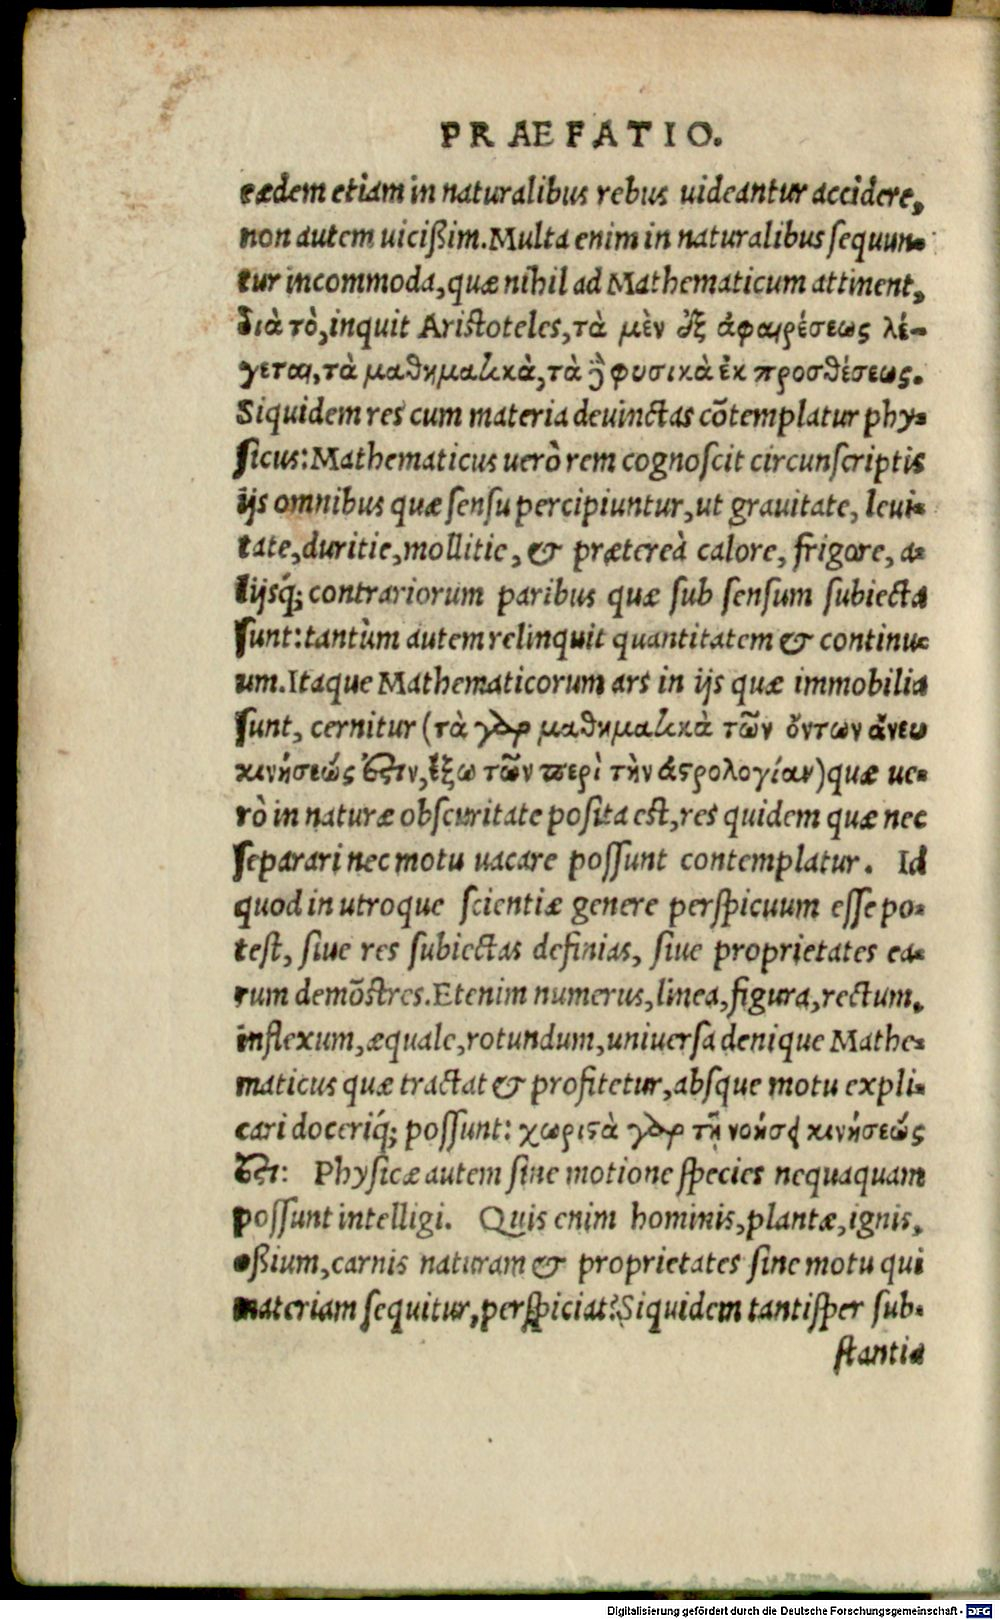 PRAEFATIO.
eædem etiam in naturalibus rebus uideantur accidere,
non autem uicißim. Multa enim in naturalibus sequun-
tur incommoda, quæ nihil ad Mathematicum attinent,
διὰ τὸ, inquit Aristoteles, τὰ μὲν ἐξ ἀφαιρέσεως λέ-
γεται, τὰ μαθηματικὰ, τὰ δὲ φυσικὰ ἐκ προσθέσεως.
Siquidem res cum materia deuinctas cõtemplatur phy-
sicus: Mathematicus uerò rem cognoscit circunscriptis
ijs omnibus quæ sensu percipiuntur, ut grauitate, leui-
tate, duritie, mollitie, & præterea calore, frigore, a-
lijsq́; contrariorum paribus quæ sub sensum subiecta
sunt: tantùm autem relinquit quantitatem & continu-
um. Itaque Mathematicorum ars in ijs quæ immobilia
sunt, cernitur (τὰ γὰρ μαθηματικὰ τῶν ὄντων ἄνευ
κινήσεώς ἐστιν, ἔξω τῶν περὶ τὴν ἀστρολογίαν) quæ ue-
rò in naturæ obscuritate posita est, res quidem quæ nec
separari nec motu uacare possunt contemplatur. Id
quod in utroque scientiæ genere perspicuum esse po-
test, siue res subiectas definias, siue proprietates ea-
rum demõstres. Etenim numerus, linea, figura, rectum,
inflexum, æquale, rotundum, uniuersa denique Mathe-
maticus quæ tractat & profitetur, absque motu expli-
cari doceriq́; possunt: χωριστὰ γὰρ τῇ νοήσει κινήσεώς
ἐστι: Physicæ autem sine motione species nequaquam
possunt intelligi. Quis enim hominis, plantæ, ignis,
oßium, carnis naturam & proprietates sine motu qui
materiam sequitur, perspiciat? Siquidem tantisper sub-
stantia
Digitalisierung gefördert durch die Deutsche Forschungsgemeinschaft - DFG